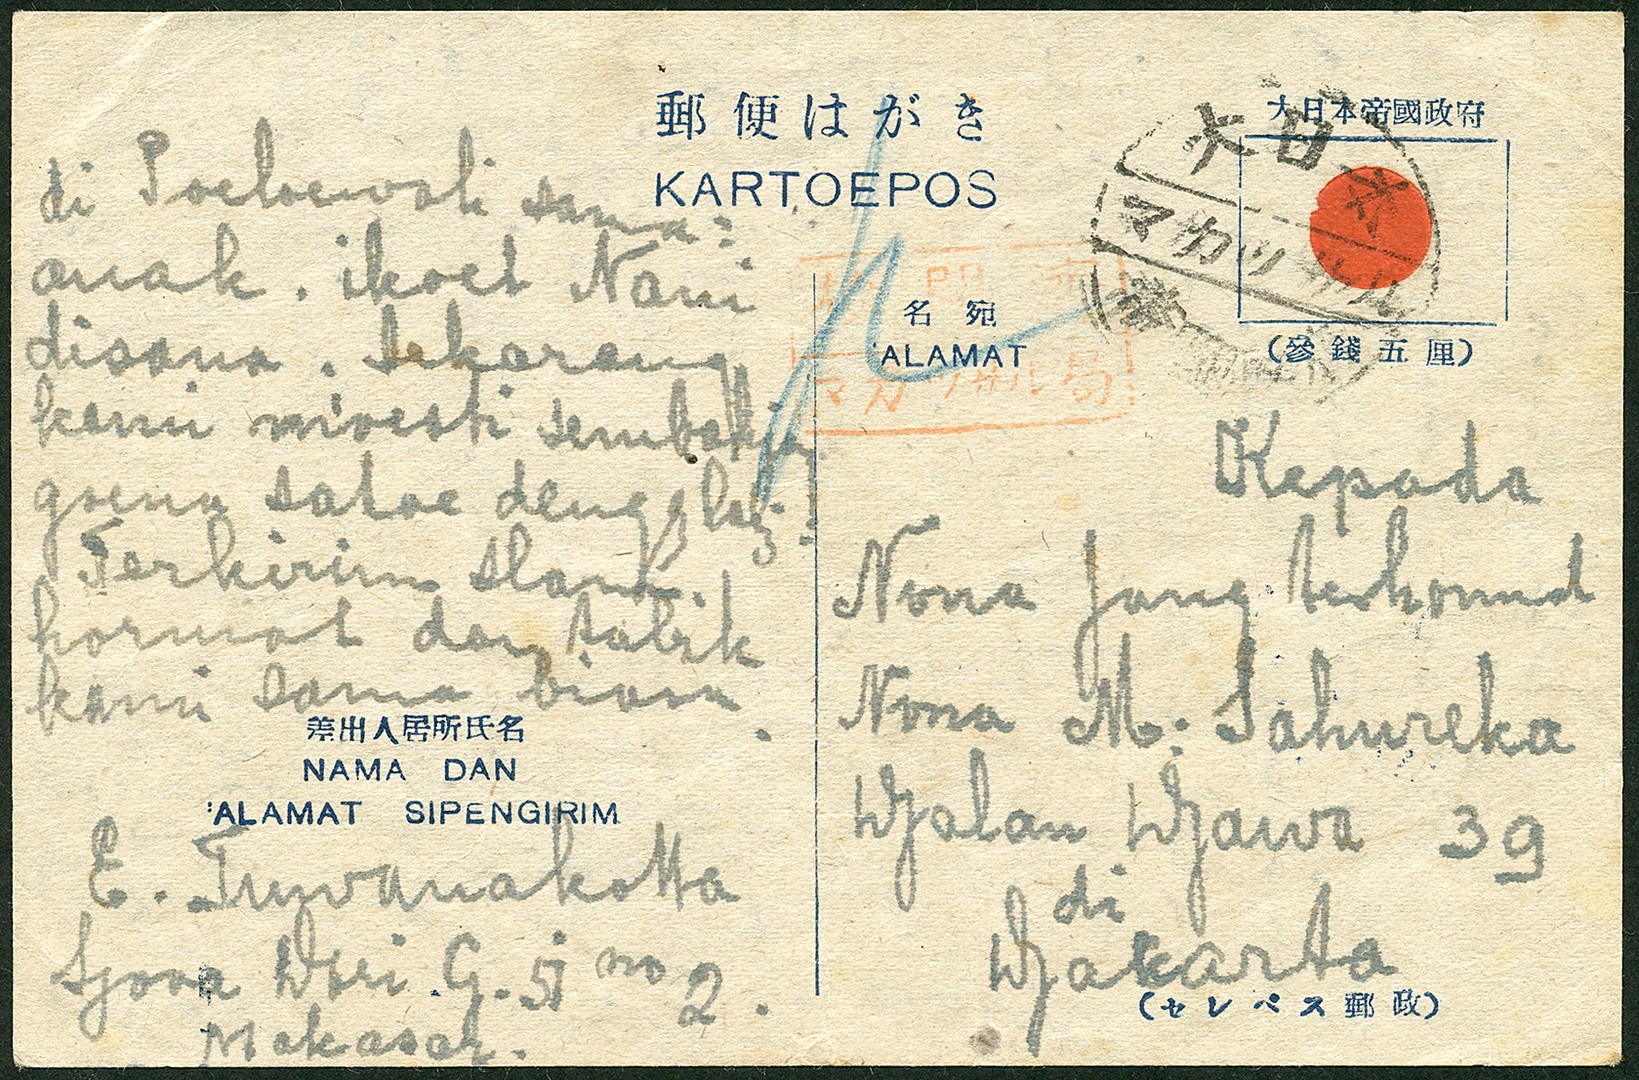 郵便はがき
KARTOEPOS
大日本帝國政府
(參錢五厘)
大日本
マカッサル
名宛
ALAMAT
マカッサル局
di sama:
anak. ikoet Nani
disana. Sekarang
kami moesti
goena satoe
Terkirim slam,
hormat dan tabik
kami sama biasa.
差出人居所氏名
NAMA DAN
'ALAMAT SIPENGIRIM
E.
G. 51 no 2.
Makasar.
Kepada
Nona jang terhormat
Nona M. Sahureka
Djalan Djawa 39
di
Djakarta
(セレベス郵政)